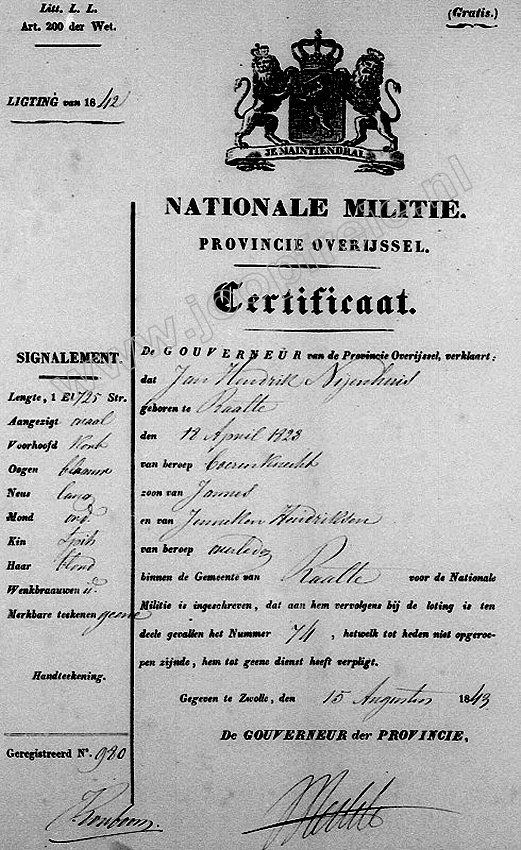 Litt. L. L.
Art. 200 der Wet.
(Gratis.)
LIGTING van 1842
JE MAINTIENDRAI
NATIONALE MILITIE.
PROVINCIE OVERIJSSEL.
Certificaat.
SIGNALEMENT.
Lengte, 1 El 725 Str.
Aangezigt ovaal
Voorhoofd
Oogen blaauw
Neus lang
Mond ord.
Kin spits
Haar blond
Wenkbraauwen id.
Merkbare teekenen geene
Handteekening.
Geregistreerd N°. 980
De GOUVERNEUR van de Provincie Overijssel, verklaart:
dat Jan Hendrik Nijenhuis
geboren te Raalte
den 18 April 1823
van beroep boerenknecht
zoon van Jannes
en van Jenneken Hendriksen
van beroep overleden
binnen de Gemeente van Raalte voor de Nationale
Militie is ingeschreven, dat aan hem vervolgens bij de loting is ten
deele gevallen het Nummer 74, hetwelk tot heden niet opgeroe-
pen zijnde, hem tot geene dienst heeft verpligt.
Gegeven te Zwolle, den 15 Augustus 1843
De GOUVERNEUR der PROVINCIE,